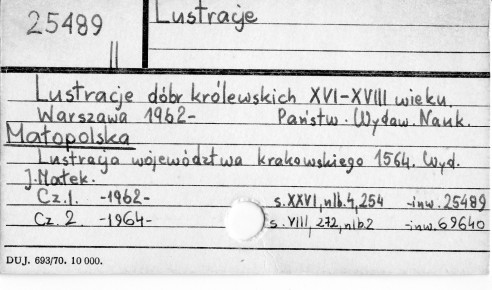 25489
II
Lustracje
Lustracje dóbr królewskich XVI-XVIII wieku.
Warszawa 1962- Państw. Wydaw. Nauk.
Małopolska
Lustracja województwa krakowskiego 1564. Wyd.
J. Małek.
Cz. 1. -1962- s. XXVI, nlb. 4, 254 -inw. 25489
Cz. 2 -1964- s. VIII, 272, nlb. 2 -inw. 69640
DUJ. 693/70. 10 000.